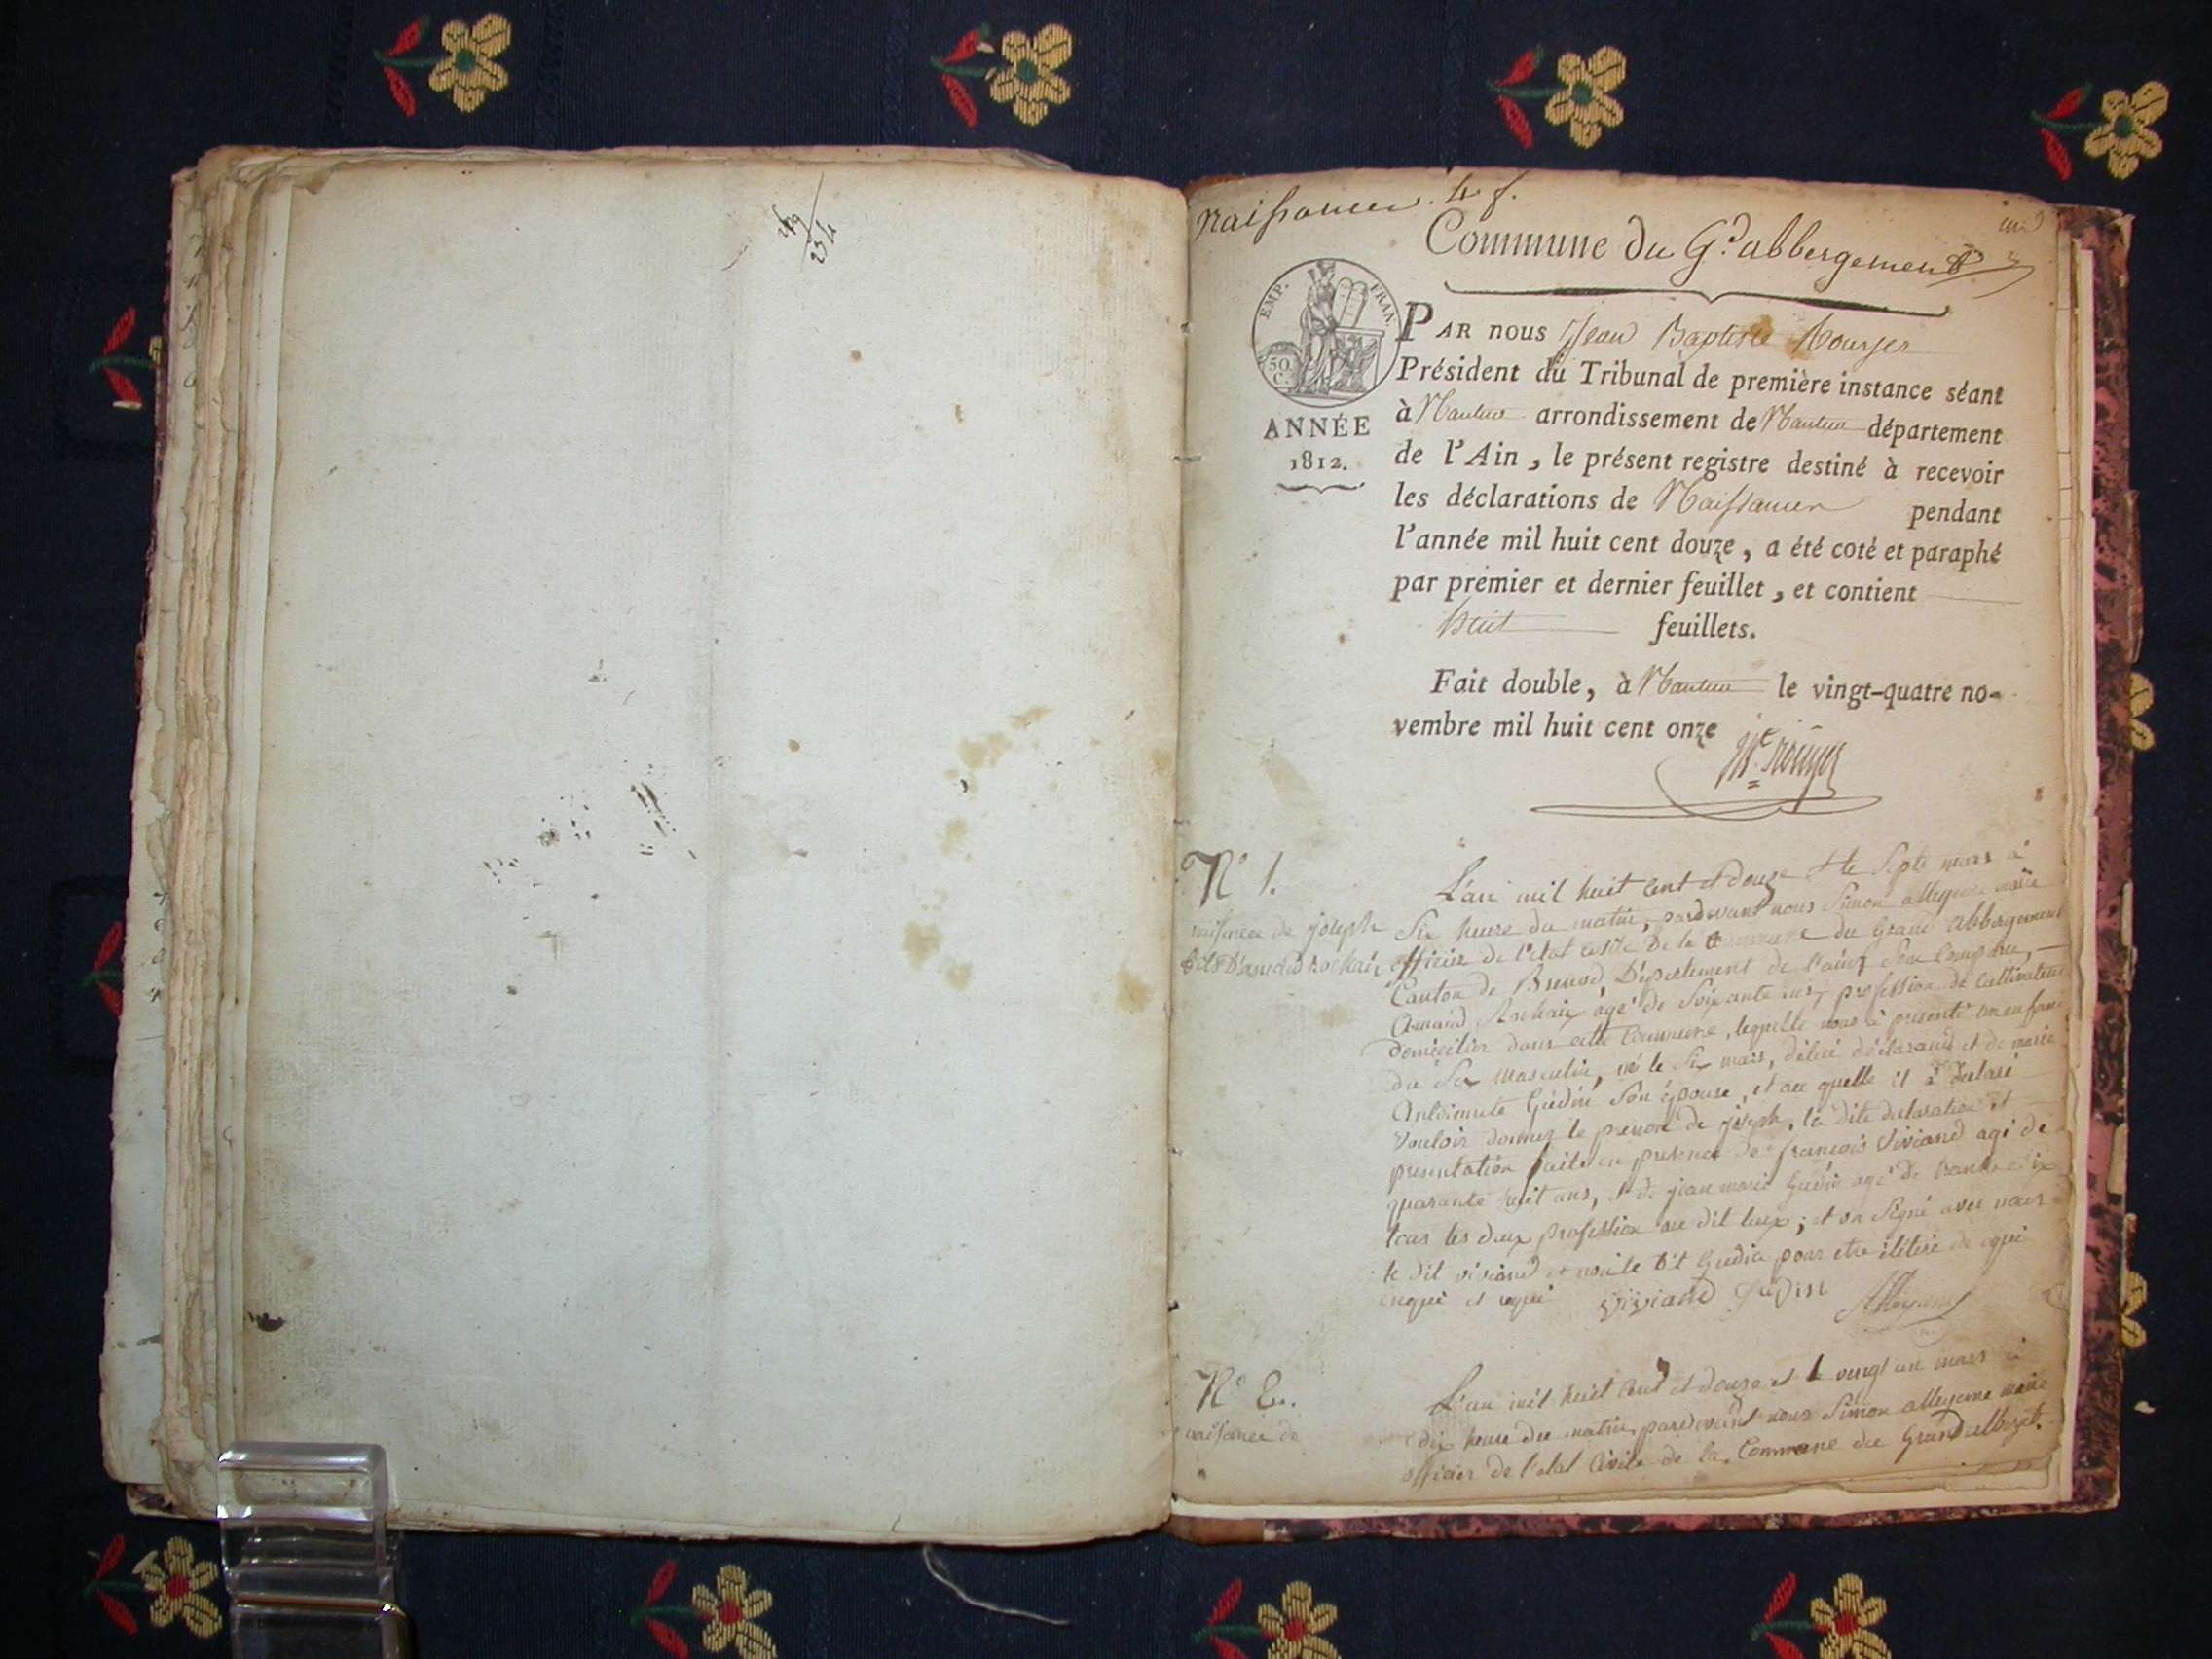 49
234
Naissances. 4 f.
Commune du Gd. abbergement
EMP. FRAN.
50 C.
ANNÉE
1812.
PAR nous Jean Baptiste Rouyer
Président du Tribunal de première instance séant
à Nantua arrondissement de Nantua département
de l'Ain, le présent registre destiné à recevoir
les déclarations de Naissances pendant
l'année mil huit cent douze, a été coté et paraphé
par premier et dernier feuillet, et contient
huit feuillets.
Fait double, à Nantua le vingt-quatre no-
vembre mil huit cent onze
N° 1.
naissance de joseph
L'an mil huit cent et douze et le septe mars à
six heure du matin, pardevant nous Simon alleyene maire
officier de l'etat civile De la Commune du Grand Abbergement
Canton de Brenod, Département de l'ain, Son Comparu,
Amand Rochaix agé de Soixante ans, profession de Cultivateur
domicilier dans cette Commune, lequelle nous à presenté un enfant
du Sex masculin, né le six mars, délui déclarand et de marie
Antoinette Gudin Son épouse, et au quelle il à Declaré
Vouloir donner le prenom de joseph, la dite declaration et
presentation faite en presence de françois Viviand agé de
quarante huit ans, et de jean marie Gudin agé De trente
tous les deux profession au dit lieux; et on Signé avec nous
le dit viviand et non le dit Gudin pour etre
enqui et requi Viviand Judin
N° 2.
naissance de
L'an mil huit Cent et douze et le vingt un mars à
dix heure du matin pardevant nous Simon alleyene maire
officier de l'etat Civile de la Commune du Grand albergt.